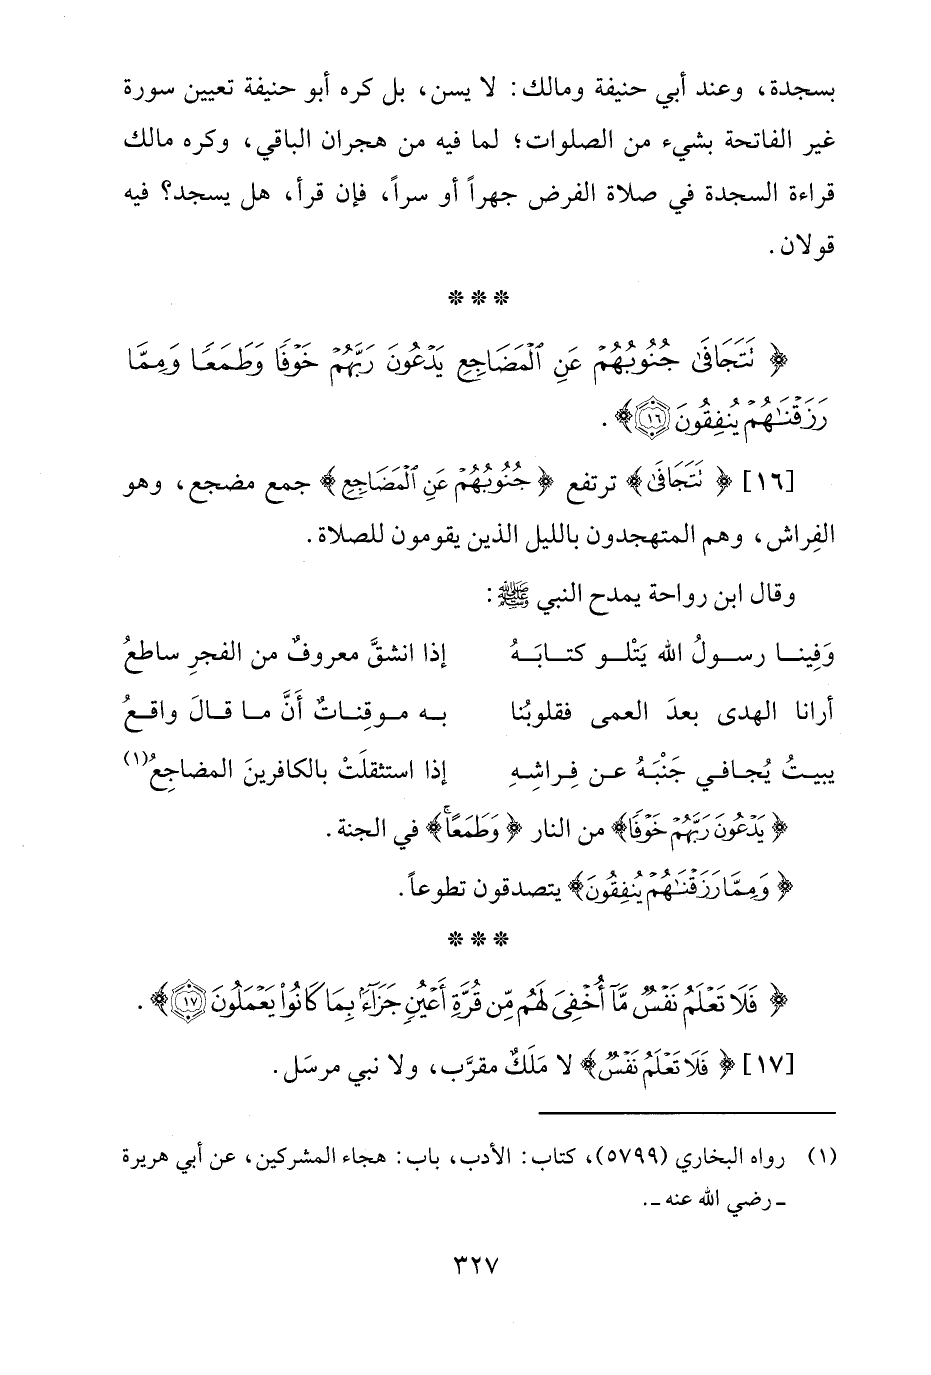 بسجدة، وعند أبي حنيفة ومالك: لا يسن، بل كره أبو حنيفة تعيين سورة
غير الفاتحة بشيء من الصلوات؛ لما فيه من هجران الباقي، وكره مالك
قراءة السجدة في صلاة الفرض جهراً أو سراً، فإن قرأ، هل يسجد؟ فيه
قولان.
* * *
﴿ نَتَجَافَىٰ جُنُوبُهُمْ عَنِ ٱلْمَضَاجِعِ يَدْعُونَ رَبَّهُمْ خَوْفًا وَطَمَعًا وَمِمَّا
رَزَقْنَٰهُمْ يُنفِقُونَ ۝١٦﴾.
[١٦] ﴿ نَتَجَافَىٰ﴾ ترتفع ﴿ جُنُوبُهُمْ عَنِ ٱلْمَضَاجِعِ﴾ جمع مضجع، وهو
الفِراش، وهم المتهجدون بالليل الذين يقومون للصلاة.
وقال ابن رواحة يمدح النبي ﷺ:
وَفِينا رسولُ الله يَتْلو كتابَهُ إذا انشقَّ معروفٌ من الفجرِ ساطعُ
أرانا الهدى بعدَ العمى فقلوبُنا به موقِناتٌ أَنَّ ما قالَ واقعُ
يبيتُ يُجافي جَنْبَهُ عن فِراشِهِ إذا استثقلَتْ بالكافرينَ المضاجِعُ(١)
﴿ يَدْعُونَ رَبَّهُمْ خَوْفًا﴾ من النار ﴿ وَطَمَعًا﴾ في الجنة.
﴿ وَمِمَّا رَزَقْنَٰهُمْ يُنفِقُونَ﴾ يتصدقون تطوعاً.
* * *
﴿ فَلَا تَعْلَمُ نَفْسٌ مَّآ أُخْفِىَ لَهُم مِّن قُرَّةِ أَعْيُنٍ جَزَآءًۢ بِمَا كَانُوا۟ يَعْمَلُونَ ۝١٧﴾.
[١٧] ﴿ فَلَا تَعْلَمُ نَفْسٌ﴾ لا مَلَكٌ مقرَّب، ولا نبي مرسَل.
(١) رواه البخاري (٥٧٩٩)، كتاب: الأدب، باب: هجاء المشركين، عن أبي هريرة
ـ رضي الله عنه ـ.
٣٢٧